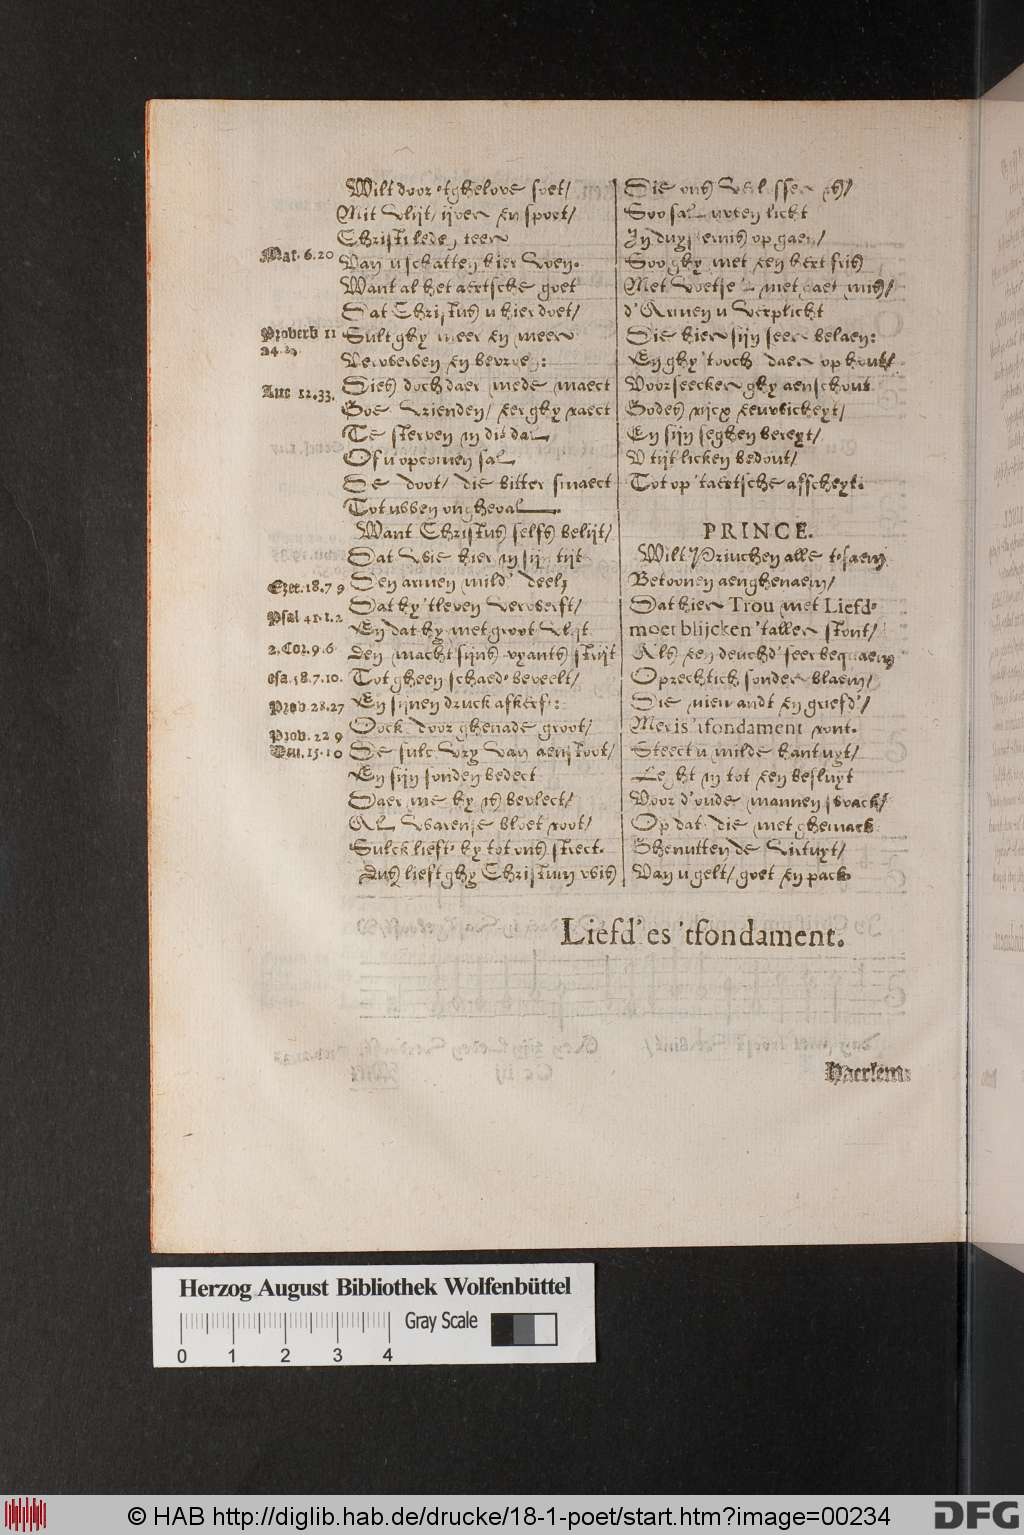 Wilt door 'tghelove soet/
Mit vlijt/ ijver en spoet/
Christi leden teer
Mat. 6.20
Van u schatten hier wen.
Want al het aertsche goet
Dat Christus u hier doet/
Proverb 11
24.
Sult ghy meer en meer
Verwerven en
Luc 12.33.
Dies doch daer mede maect
Goe vrienden/ eer ghy raect
Te sterven in dit dal
Of u opcomen sal
De doot/ die bitter smaect
Tot ussen ongheval.
Want Christus selfs belijt/
Dat wie hier in sijn tijt
Ezec. 18.7 9
Den armen mild' deelt
Psal 41.1.2
Dat hy 'tleven verwerft/
En dat hy met groot vlijt
2. Cor. 9.6
Den macht sijns vyants strijt
esa. 58.7.10.
Tot gheen schaed' beveelt/
Prob. 28.27
En sijnen druck afkerft:
Oock door ghenade groot/
Prov. 22 9
Deu. 15.10
De sulc vry van aenstoot/
En sijn sonden bedect
Daer me hy is bevlect/
Al warense bloet root/
Sulck liefd' hy tot ons strect.
Dus lieft ghy Christum wis
Die ons Verlosser is/
Soo sal u een licht
In duysternis op gaen/
Soo ghy met een hert fris
Met voetsel met daet mis/
d'Armen u verplicht
Die hier sijn seer belaen:
En ghy 'tooch daer op hout/
Voorseecker ghy aenschout
Godes rijcx eeuwicheyt/
En sijn seghen bereyt/
V tijtlicken bedout/
Tot op 'taertsche afscheyt.
PRINCE.
Wilt Princhen alle t'saem
Betoonen aenghenaem/
Dat hier Trou met Liefd'
moet blijcken 'taller stont/
Als een deuchd' seer bequaem
Oprechtich sonder blaem/
Die niemandt en griefd'/
Mer is 'tfondament ront.
Steect u milde hant uyt/
Leght in tot een besluyt
Voor d'oude mannen swack/
Op dat die met ghemack
Ghenutten de virtuyt/
Van u gelt/ goet en pack
Liefd' es 'tfondament.
Haerlem:
Herzog August Bibliothek Wolfenbüttel
Gray Scale
0 1 2 3 4
© HAB http://diglib.hab.de/drucke/18-1-poet/start.htm?image=00234
DFG